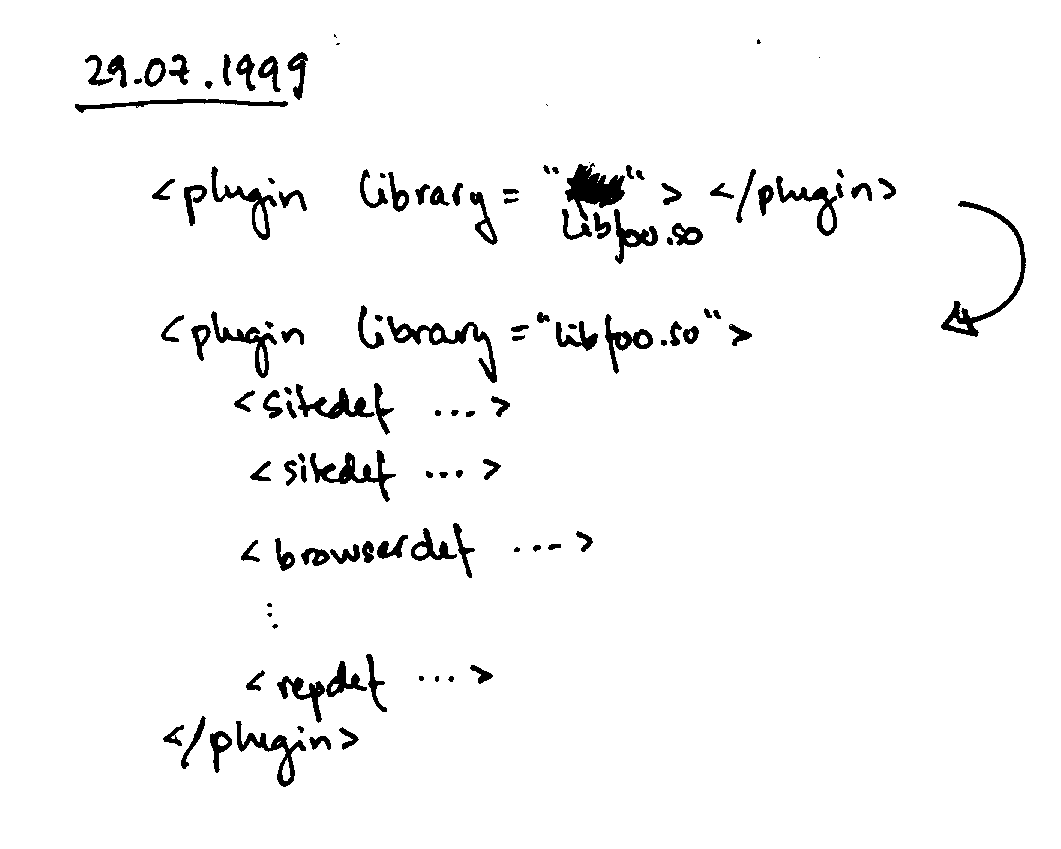 29.07.1999
<plugin library = "libfoo.so"> </plugin>
<plugin library = "libfoo.so">
<sitedef ...>
<sitedef ...>
<browserdef ...>
⋮
<repdef ...>
</plugin>